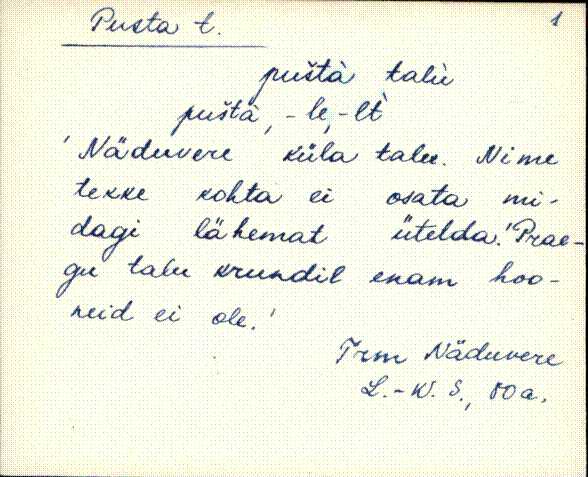 Pusta t. 1
puštà talù
puštà, -le, -lt̀
'Näduvere küla talu. Nime
tekke kohta ei osata mi-
dagi lähemat ütelda.' 'Prae-
gu talu krundil enam hoo-
neid ei ole.'
Trm Näduvere
L.-K. S., 80 a.